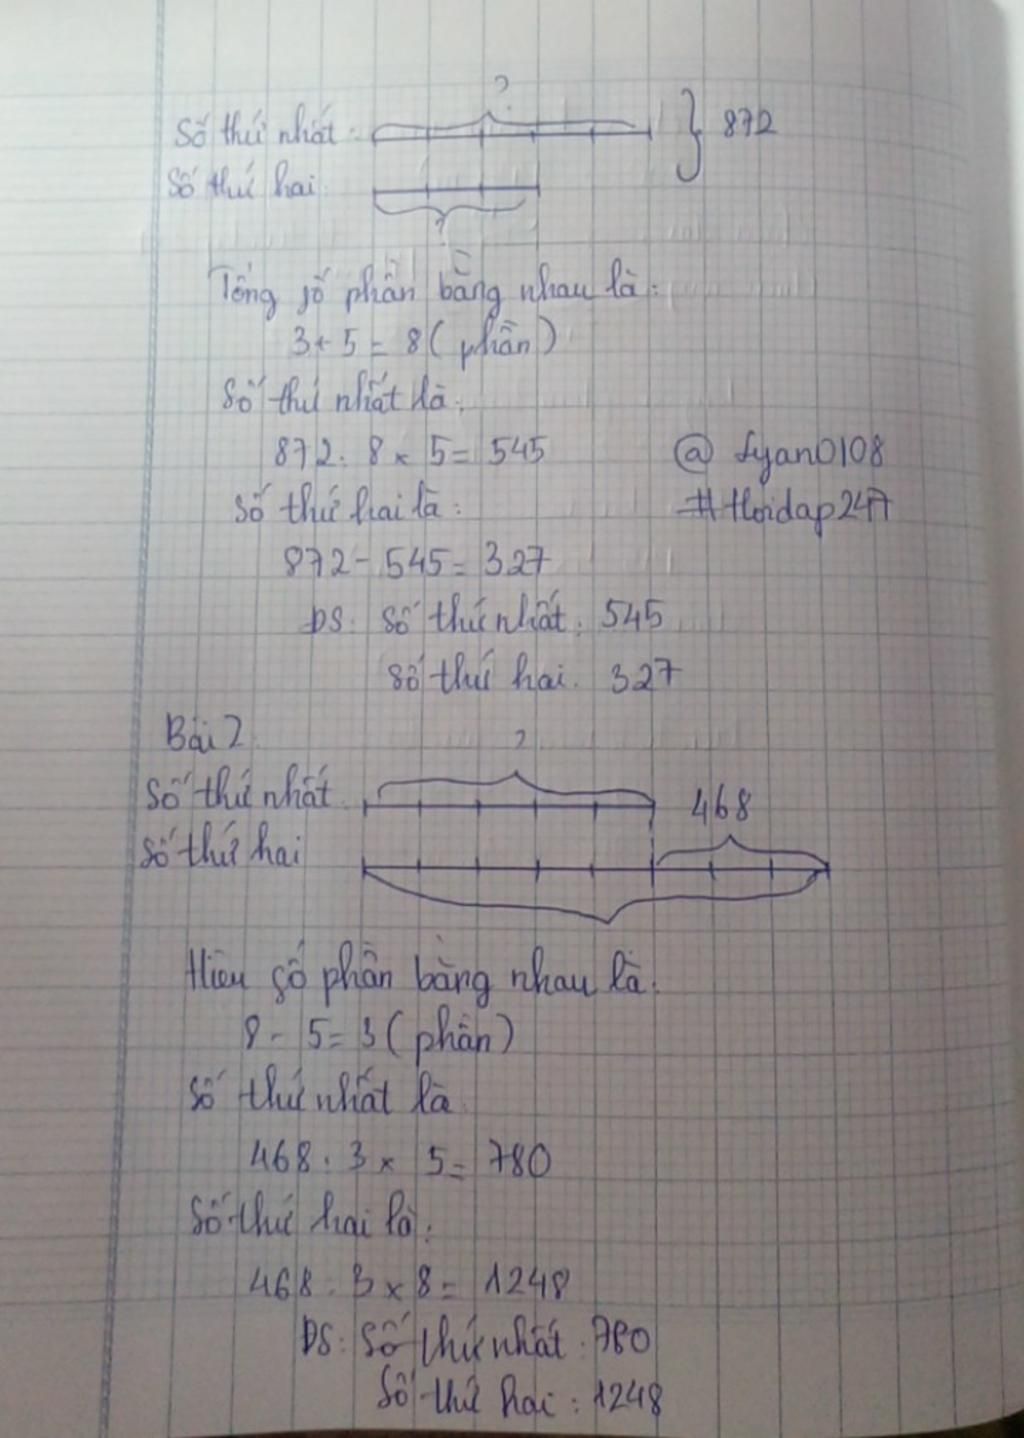 ?
Số thứ nhất: 872
Số thứ hai
?
Tổng số phần bằng nhau là:
3+5=8(phần)
Số thứ nhất là:
872: 8 x 5 = 545 @ Lyan0108
Số thứ hai là: #Hoidap247
872 - 545 = 327
ĐS: Số thứ nhất: 545
Số thứ hai: 327
Bài 2
?
Số thứ nhất 468
Số thứ hai
Hiệu số phần bằng nhau là:
8 - 5 = 3 (phần)
Số thứ nhất là
468 : 3 x 5 = 780
Số thứ hai là:
468 : 3 x 8 = 1248
ĐS: Số thứ nhất: 780
Số thứ hai: 1248